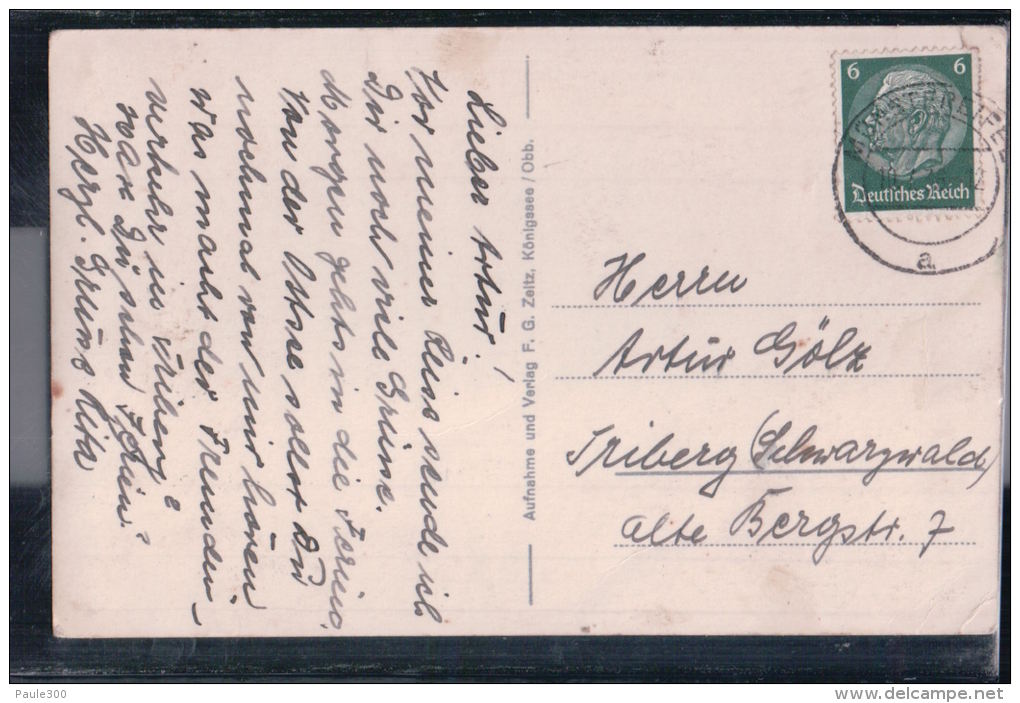 Lieber Artur!
Vor meiner Reise sende ich
Dir noch viele Grüße.
Morgen gehts in die Ferien.
Von der Ostsee sollst Du
nochmal von mir hören
Was macht der Fremden-
verkehr in Triberg?
Herzl. Gruß
Aufnahme und Verlag F. G. Zeitz, Königssee / Obb.
6 6
Deutsches Reich
a
Herrn
Artur Gölz
Triberg (Schwarzwald)
Alte Bergstr. 7
Paule300
www.delcampe.net